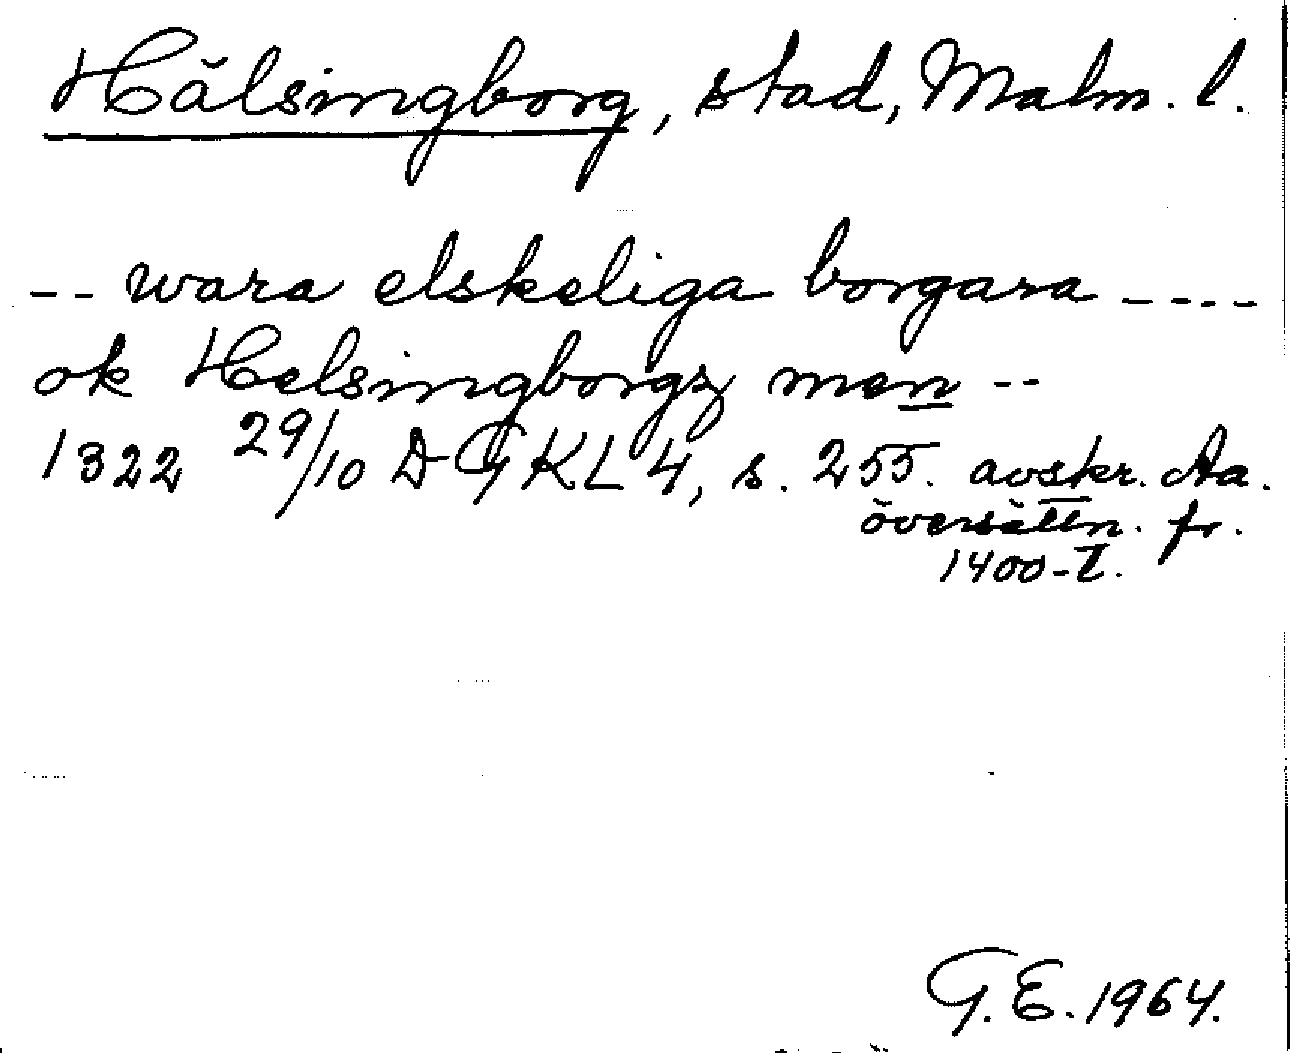 Hälsingborg, stad, Malm. l.
-- wara elskeliga borgara ----
ok Helsingborgz men --
1322 29/10 DGKL 4, s. 255. avskr. Aa.
översättn. fr.
1400-t.
G.E. 1964.